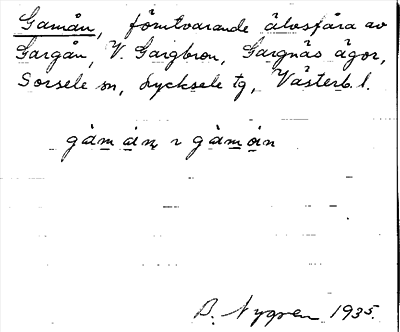 Gamån, förutvarande älvsfåra av
Gargån, V. Gargbron, Gargnäs ägor,
Sorsele sn, Lycksele tg, Västerb. l.
gàmán, ~ gàmán
B. Nygren 1935.